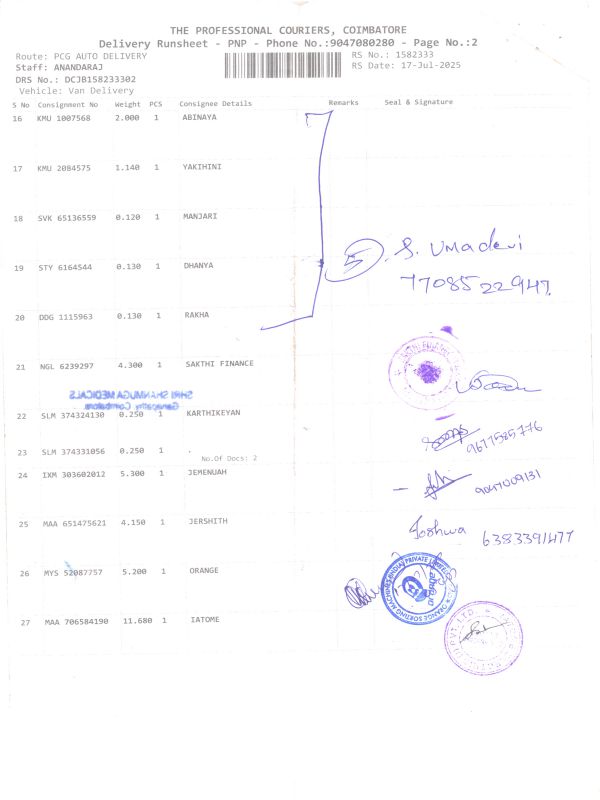 THE PROFESSIONAL COURIERS, COIMBATORE
Delivery Runsheet - PNP - Phone No.:9047080280 - Page No.:2
Route: PCG AUTO DELIVERY RS No.: 1582333
Staff: ANANDARAJ RS Date: 17-Jul-2025
DRS No.: DCJB158233302
Vehicle: Van Delivery
S No Consignment No Weight PCS Consignee Details Remarks Seal & Signature
16 KMU 1007568 2.000 1 ABINAYA
17 KMU 2084575 1.140 1 YAKIHINI
18 SVK 65136559 0.120 1 MANJARI
5 S. Umadevi
19 STY 6164544 0.130 1 DHANYA
77085 22947
20 DDG 1115963 0.130 1 RAKHA
21 NGL 6239297 4.300 1 SAKTHI FINANCE
SHRI SHANMUGA MEDICALS
Ganapathy, Coimbatore
22 SLM 374324130 0.250 1 KARTHIKEYAN
9677585776
23 SLM 374331056 0.250 1 .
No.Of Docs: 2
24 IXM 303602012 5.300 1 JEMENUAH
9047009131
25 MAA 651475621 4.150 1 JERSHITH
Joshwa 6383391477
26 MYS 52087757 5.200 1 ORANGE
ORANGE SORTING MACHINES (INDIA) PRIVATE LIMITED
27 MAA 706584190 11.680 1 IATOME